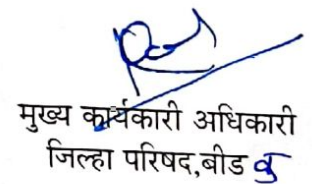 मुख्य कार्यकारी अधिकारी
जिल्हा परिषद,बीड